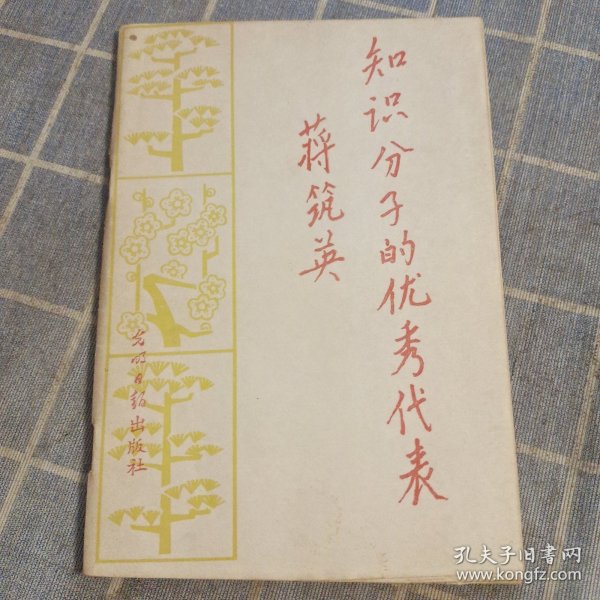 知识分子的优秀代表
蒋筑英
光明日报出版社
孔夫子旧书网
www.kongfz.com